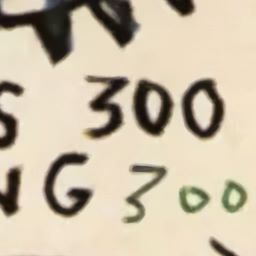 S 300
NG 300